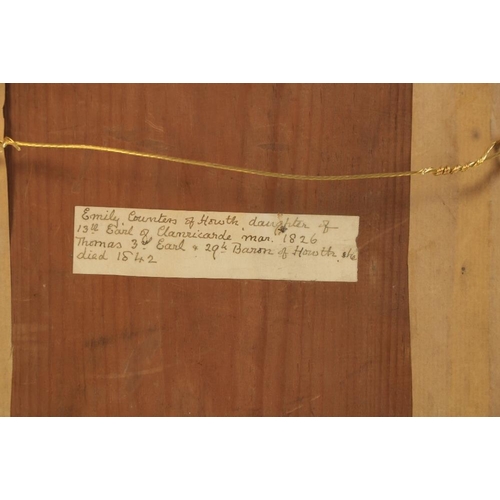 Emily Countess of Howth daughter of
13th Earl of Clanricarde mar. 1826
Thomas 3rd Earl & 29th Baron of Howth she
died 1842